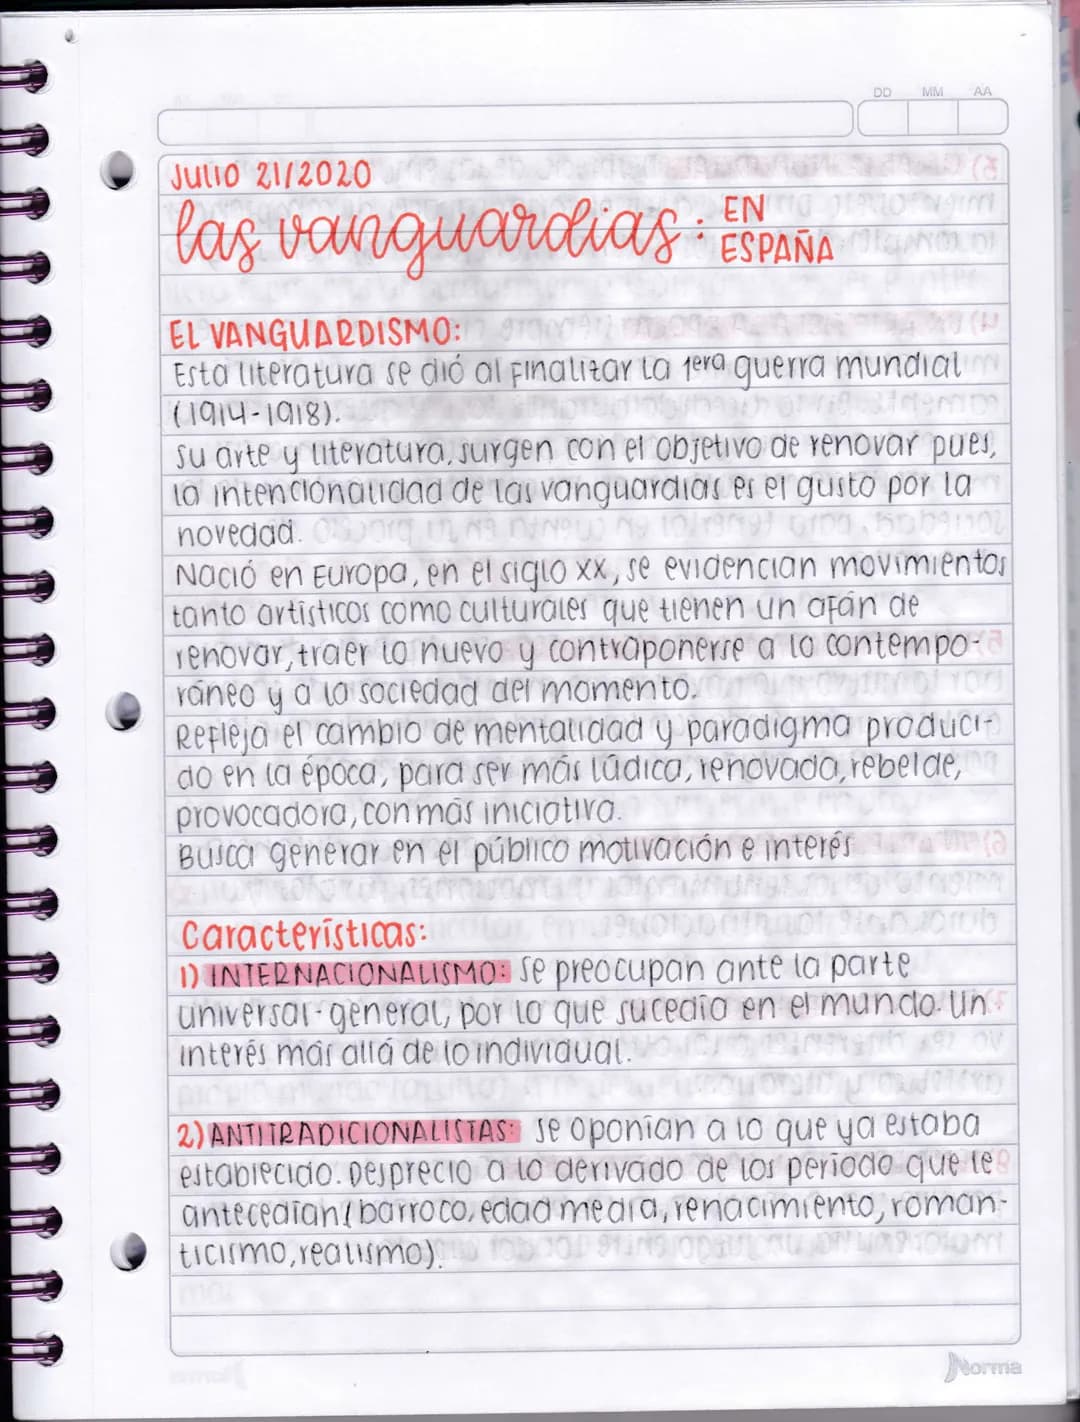 DD MM AA
Julio 21/2020
las vanguardias: EN ESPAÑA
EL VANGUARDISMO:
Esta literatura se dió al finalizar la 1era guerra mundial
(1914-1918).
Su arte y literatura, surgen con el objetivo de renovar pues,
la intencionalidad de las vanguardias es el gusto por la
novedad.
Nació en Europa, en el siglo XX, se evidencian movimientos
tanto artísticos como culturales que tienen un afán de
renovar, traer lo nuevo y contraponerse a lo contempo-
ráneo y a la sociedad del momento.
Refleja el cambio de mentalidad y paradigma produci-
do en la época, para ser más lúdica, renovada, rebelde,
provocadora, con más iniciativa.
Busca generar en el público motivación e interés
Características:
1) INTERNACIONALISMO: Se preocupan ante la parte
universal-general, por lo que sucedía en el mundo. Un
interés más allá de lo individual.
2) ANTITRADICIONALISTAS: Se oponían a lo que ya estaba
establecido. Desprecio a lo derivado de los período que le
antecedían (barroco, edad media, renacimiento, roman-
ticismo, realismo).
Norma